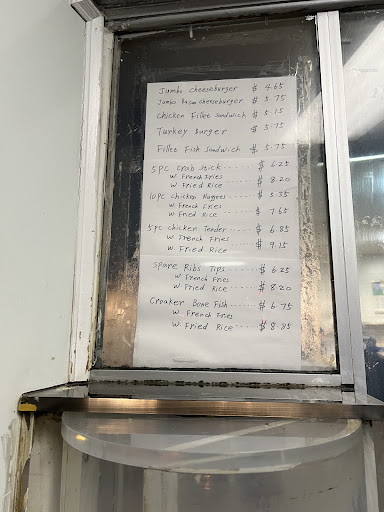 Jumbo cheeseburger $ 4.65
Jumbo Bacon cheeseburger $ 5.75
chicken Fillet Sandwich $ 5.15
Turkey Burger $ 5.75
Fillet Fish Sandwich $ 5.75
5 PC crab stick ....... $ 6.25
w. French Fries
w Fried Rice ....... $ 8.20
10 PC chicken Nugees ..... $ 5.35
w. French Fries
w. Fried Rice ....... $ 7.65
5 pc chicken Tender ...... $ 6.85
w French Fries
w. Fried Rice ....... $ 9.15
Spare Ribs Tips ....... $ 6.25
w French Fries
w Fried Rice ....... $ 8.20
Croaker Bone Fish ...... $ 6.75
w. French Fries
w. Fried Rice ..... $ 8.85